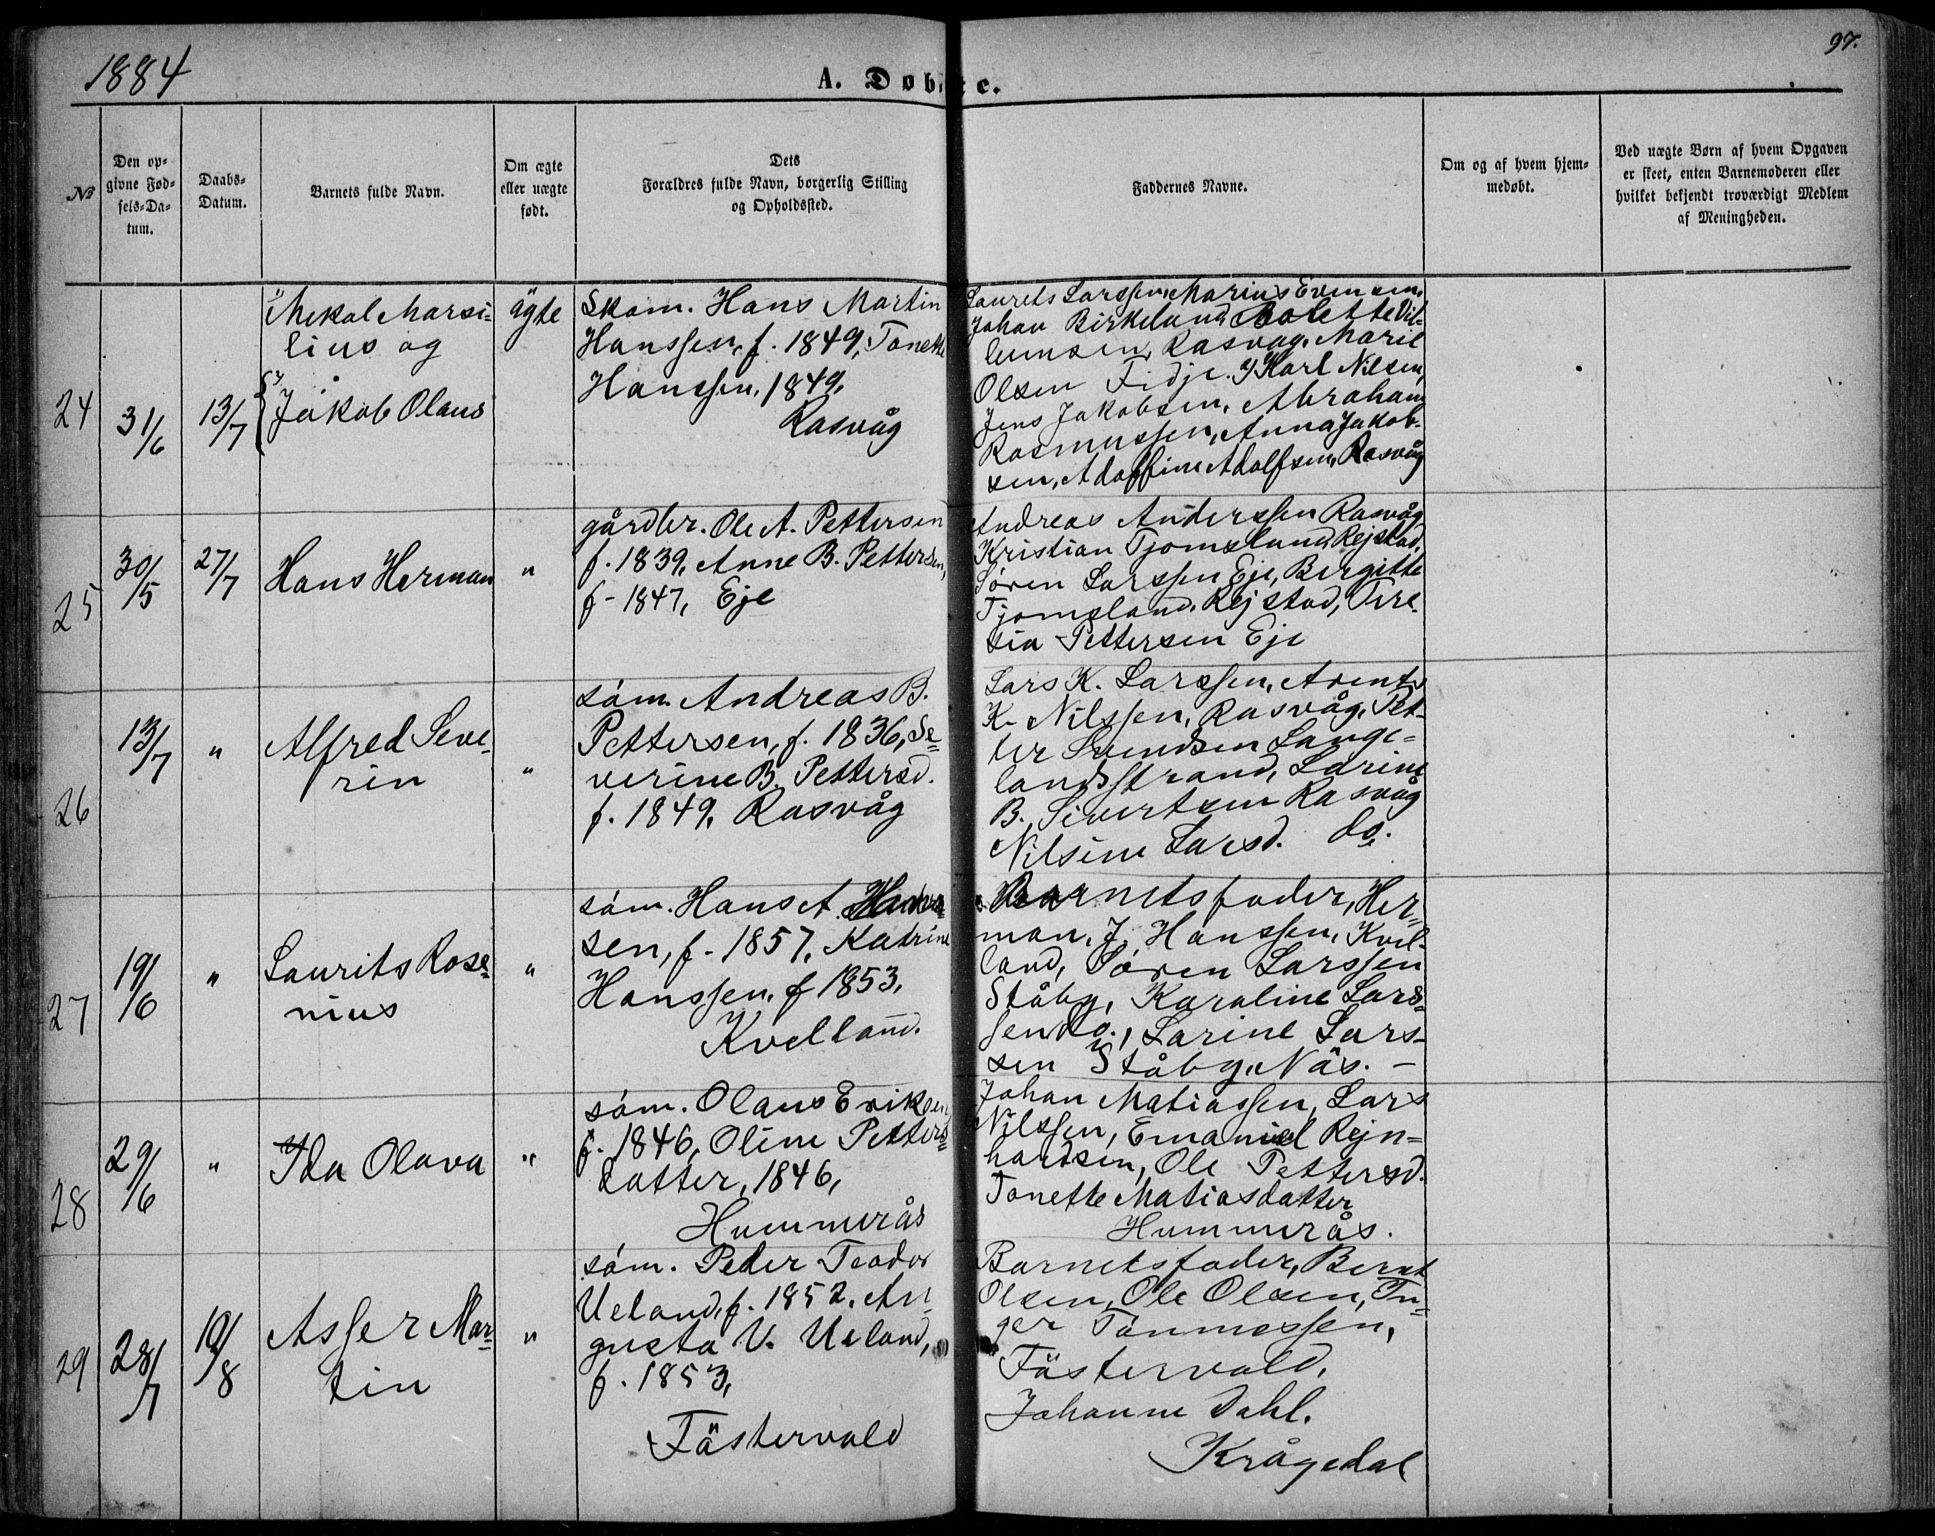 1884
A. Døbte.
97.
№
Den op-
givne Fød-
sels-Da-
tum.
Daabs-
Datum.
Barnets fulde Navn.
Om ægte
eller uægte
født.
Dets
Forældres fulde Navn, borgerlig Stilling
og Opholdssted.
Faddernes Navne.
Om og af hvem hjem-
medøbt.
Ved uægte Børn af hvem Opgaven
er skeet, enten Barnemoderen eller
hvilket bekjendt troværdigt Medlem
af Meningheden.
24
31/6
13/7
Mekal Marsi-
lius og
Jakob Olaus
ägte
Skom. Hans Martin
Hanssen, f. 1849, Tonette
Hanssen, 1849,
Rasvåg
Laurets Larssen, Marius Evensen,
Johan Birkeland, Bolette Vil-
lumsen, Rasvag, Marie
Olsen Fidje. Karl Nilsen,
Jens Jakobsen, Abraham
Rasmussen, Anna Jakob-
sen, Adolfine Adolfsen, Rasvåg
25
30/5
27/7
Hans Herman
"
gårdbr. Ole A. Pettersen
f. 1839, Anne B. Pettersen,
f- 1847, Eje
Andreas Anderssen Rasvåg
Kristian Tjomsland Rejstad,
Søren Larssen Eje, Bergitte
Tjomsland, Rejstad, Tere-
sia Pettersen Eje
26
13/7
"
Alfred Seve-
rin
"
söm. Andreas B.
Pettersen, f. 1836, Se-
verine B. Pettersd.
f. 1849, Rasvåg
Lars K. Larssen, Arent
K. Nilssen, Rasvåg, Pet-
ter Svendsen Lange-
landsstrand, Larine
B. Sivertsen Rasvåg
Nilsine Larsd. do.
27
19/6
"
Laurits Rose-
nius
"
söm. Hans A. Hans-
sen, f- 1857, Katrine
Hanssen, f 1853,
Kvelland.
Barnets fader, Her-
man J. Hanssen, Kvel-
land, Søren Larssen
Ståbg, Karoline Lars-
sen do., Larine Lars-
sen Ståbg, Näs. -
28
29/6
"
Ida Olava
"
söm. Olaus Eriksen
f. 1846, Oline Petters-
datter, 1846,
Hummerås
Johan Matiassen, Lars
Nilssen, Emanuel Rejn-
hardsen, Ole Pettersd.
Tonette Matiasdatter
Hummerås.
29
28/7
19/8
Asser Mar-
tin
"
söm. Peder Teodor
Ueland, f. 1852, Au-
gusta V. Ueland,
f. 1853,
Fästervold
Barnets fader, Bernt
Olsen, Ole Olsen, In-
ger Tönnessen,
Fästervold,
Johanne Dahl.
Krågedal